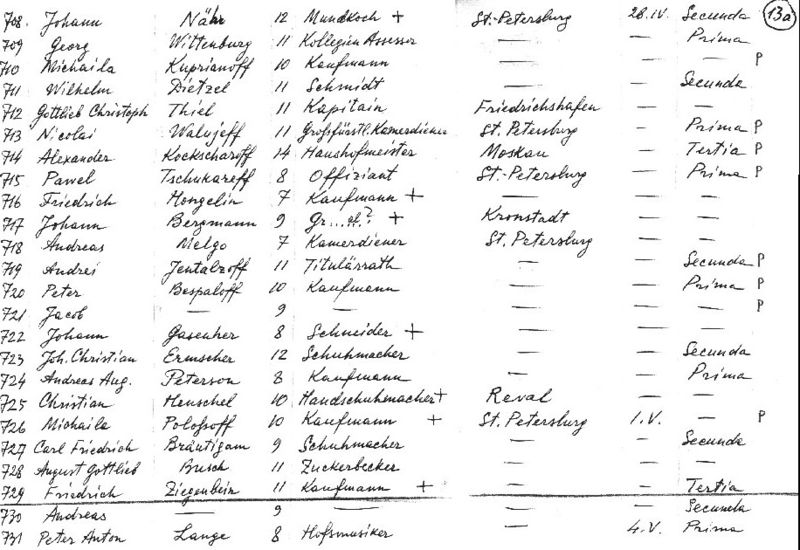 708. Johann Nähr 12 Mundkoch + St.-Petersburg 28.IV. Secunda 13a
709 Georg Wittenburg 11 Kollegien Assessor — — Prima
710 Michaila Kuprianoff 10 Kaufmann — — — P
711 Wilhelm Dietzel 11 Schmidt — — Secunda
712 Gottlieb Christoph Thiel 11 Kapitain Friedrichshafen — —
713 Nicolai Walujeff 11 Großfürstl. Kamerdiener St. Petersburg — Prima P
714 Alexander Kockscharoff 14 Haushofmeister Moskau — Tertia P
715 Pawel Tschukareff 8 Offiziant St.-Petersburg — Prima P
716 Friedrich Hongelin 7 Kaufmann + — — —
717 Johann Bergmann 9 Gr...el? + Kronstadt — —
718 Andreas Melgo 7 Kamerdiener St. Petersburg — —
719 Andrei Jentalzoff 11 Titulärrath — — Secunda P
720 Peter Bespaloff 10 Kaufmann — — Prima P
721 Jacob — 9 — — — — P
722 Johann Gasenher 8 Schneider + — — —
723 Joh. Christian Ermscher 12 Schuhmacher — — Secunda
724 Andreas Aug. Peterson 8 Kaufmann — — Prima
725 Christian Henschel 10 Handschuhmacher + Reval — —
726 Michaila Polofsoff 10 Kaufmann + St. Petersburg 1.V. — P
727 Carl Friedrich Bräutigam 9 Schuhmacher — — Secunda
728 August Gottlieb Busch 11 Zuckerbecker — — —
729 Friedrich Ziegenbein 11 Kaufmann + — — Tertia
730 Andreas — 9 — — — Secunda
731 Peter Anton Lange 8 Hofsmusiker — 4.V. Prima